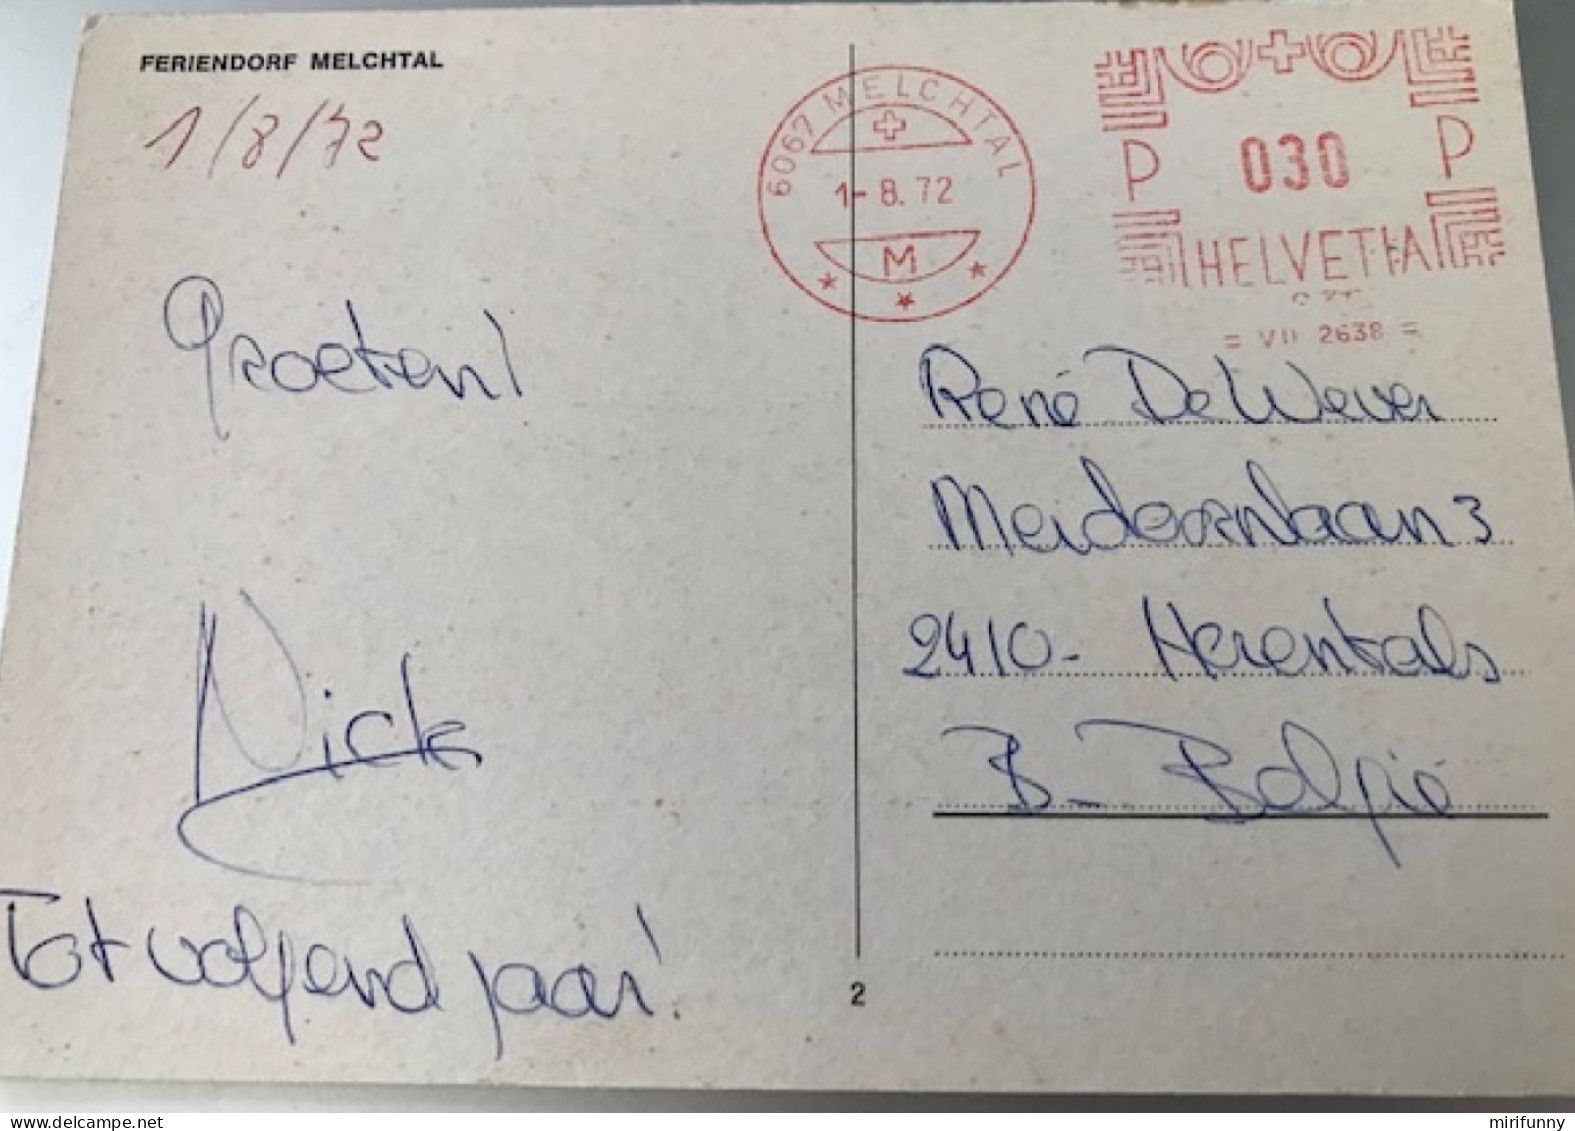 FERIENDORF MELCHTAL
1/8/72
6067 MELCHTAL
1-8.72
M
P 030 P
HELVETIA
= VII 2638 =
Groeten!
Nick
Tot volgend jaar!
René De Wever
3
2410- Herentals
B- België
2
www.delcampe.net
mirifunny